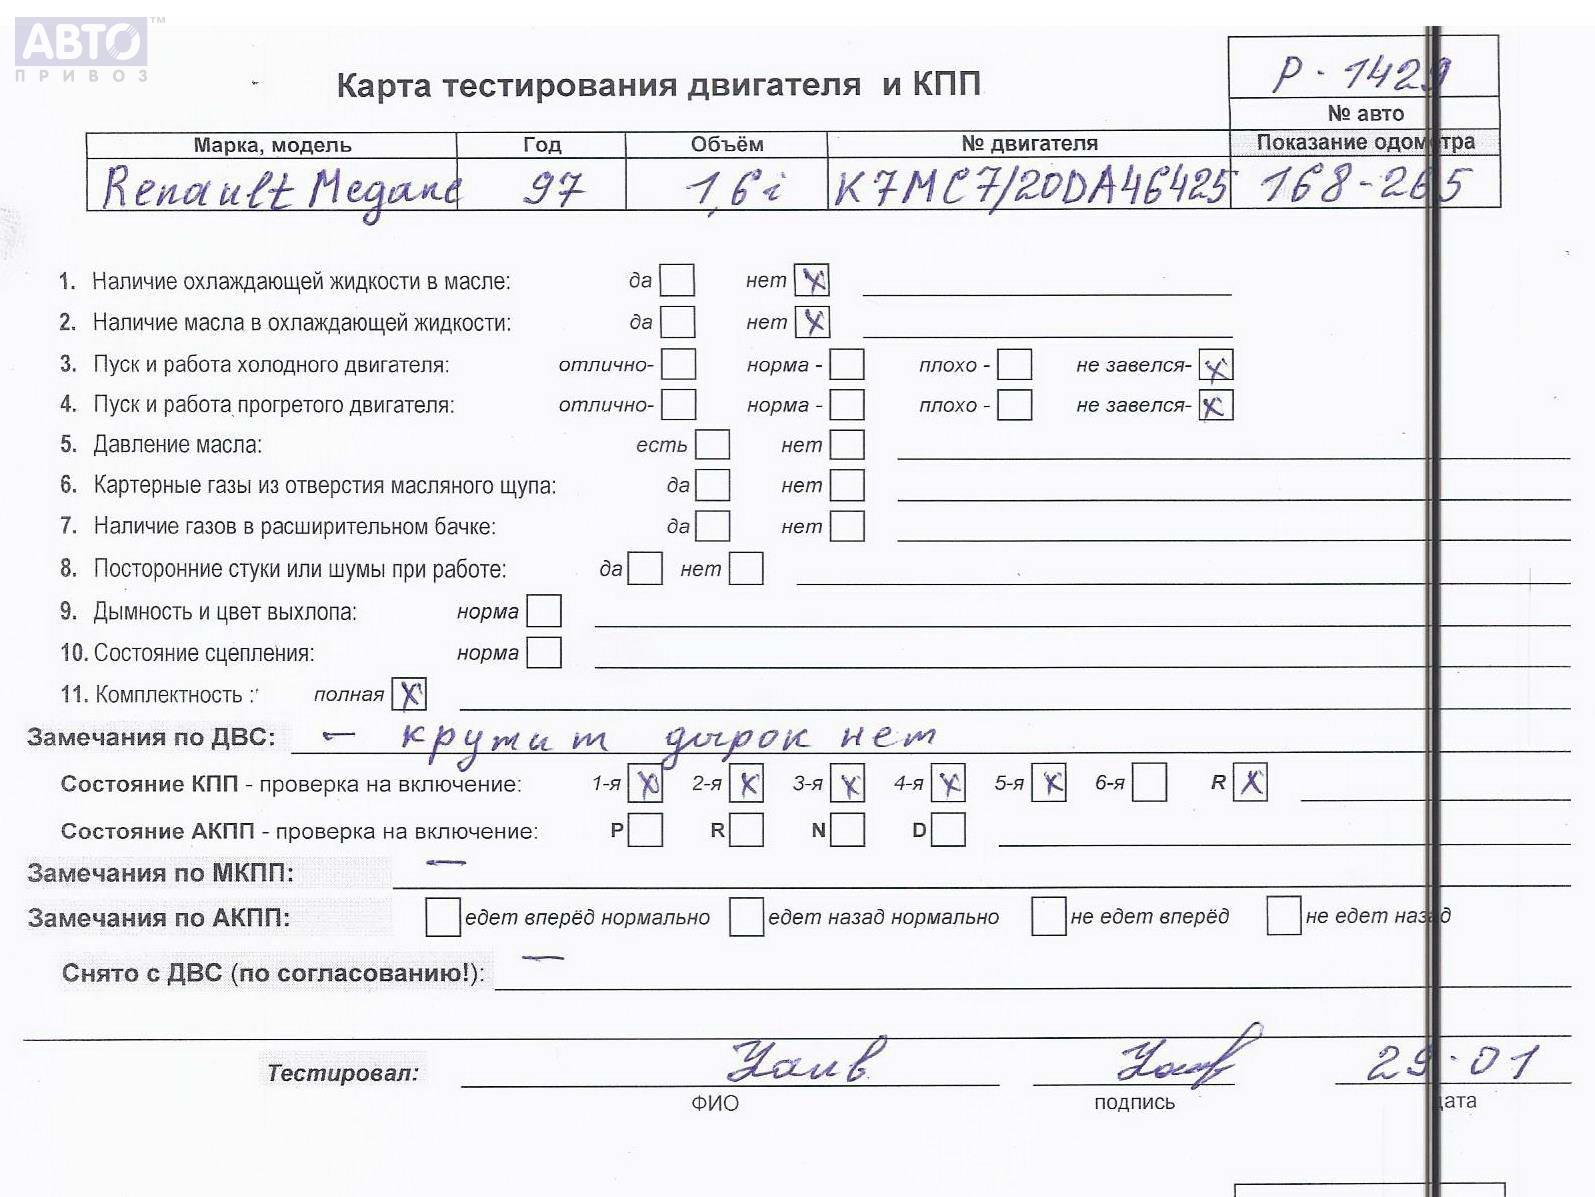 АВТО™
ПРИВОЗ
Карта тестирования двигателя и КПП
Р - 1429
№ авто
Марка, модель Год Объём № двигателя Показание одометра
Renault Megane 97 1,6i K7MC7/20DA46425 168-265
1. Наличие охлаждающей жидкости в масле: да нет X
2. Наличие масла в охлаждающей жидкости: да нет X
3. Пуск и работа холодного двигателя: отлично- норма - плохо - не завелся- X
4. Пуск и работа прогретого двигателя: отлично- норма - плохо - не завелся- X
5. Давление масла: есть нет
6. Картерные газы из отверстия масляного щупа: да нет
7. Наличие газов в расширительном бачке: да нет
8. Посторонние стуки или шумы при работе: да нет
9. Дымность и цвет выхлопа: норма
10. Состояние сцепления: норма
11. Комплектность : полная X
Замечания по ДВС: – крутит дырок нет
Состояние КПП - проверка на включение: 1-я X 2-я X 3-я X 4-я X 5-я X 6-я R X
Состояние АКПП - проверка на включение: P R N D
Замечания по МКПП: —
Замечания по АКПП: едет вперёд нормально едет назад нормально не едет вперёд не едет назад
Снято с ДВС (по согласованию!): —
Тестировал: 29.01
ФИО подпись дата